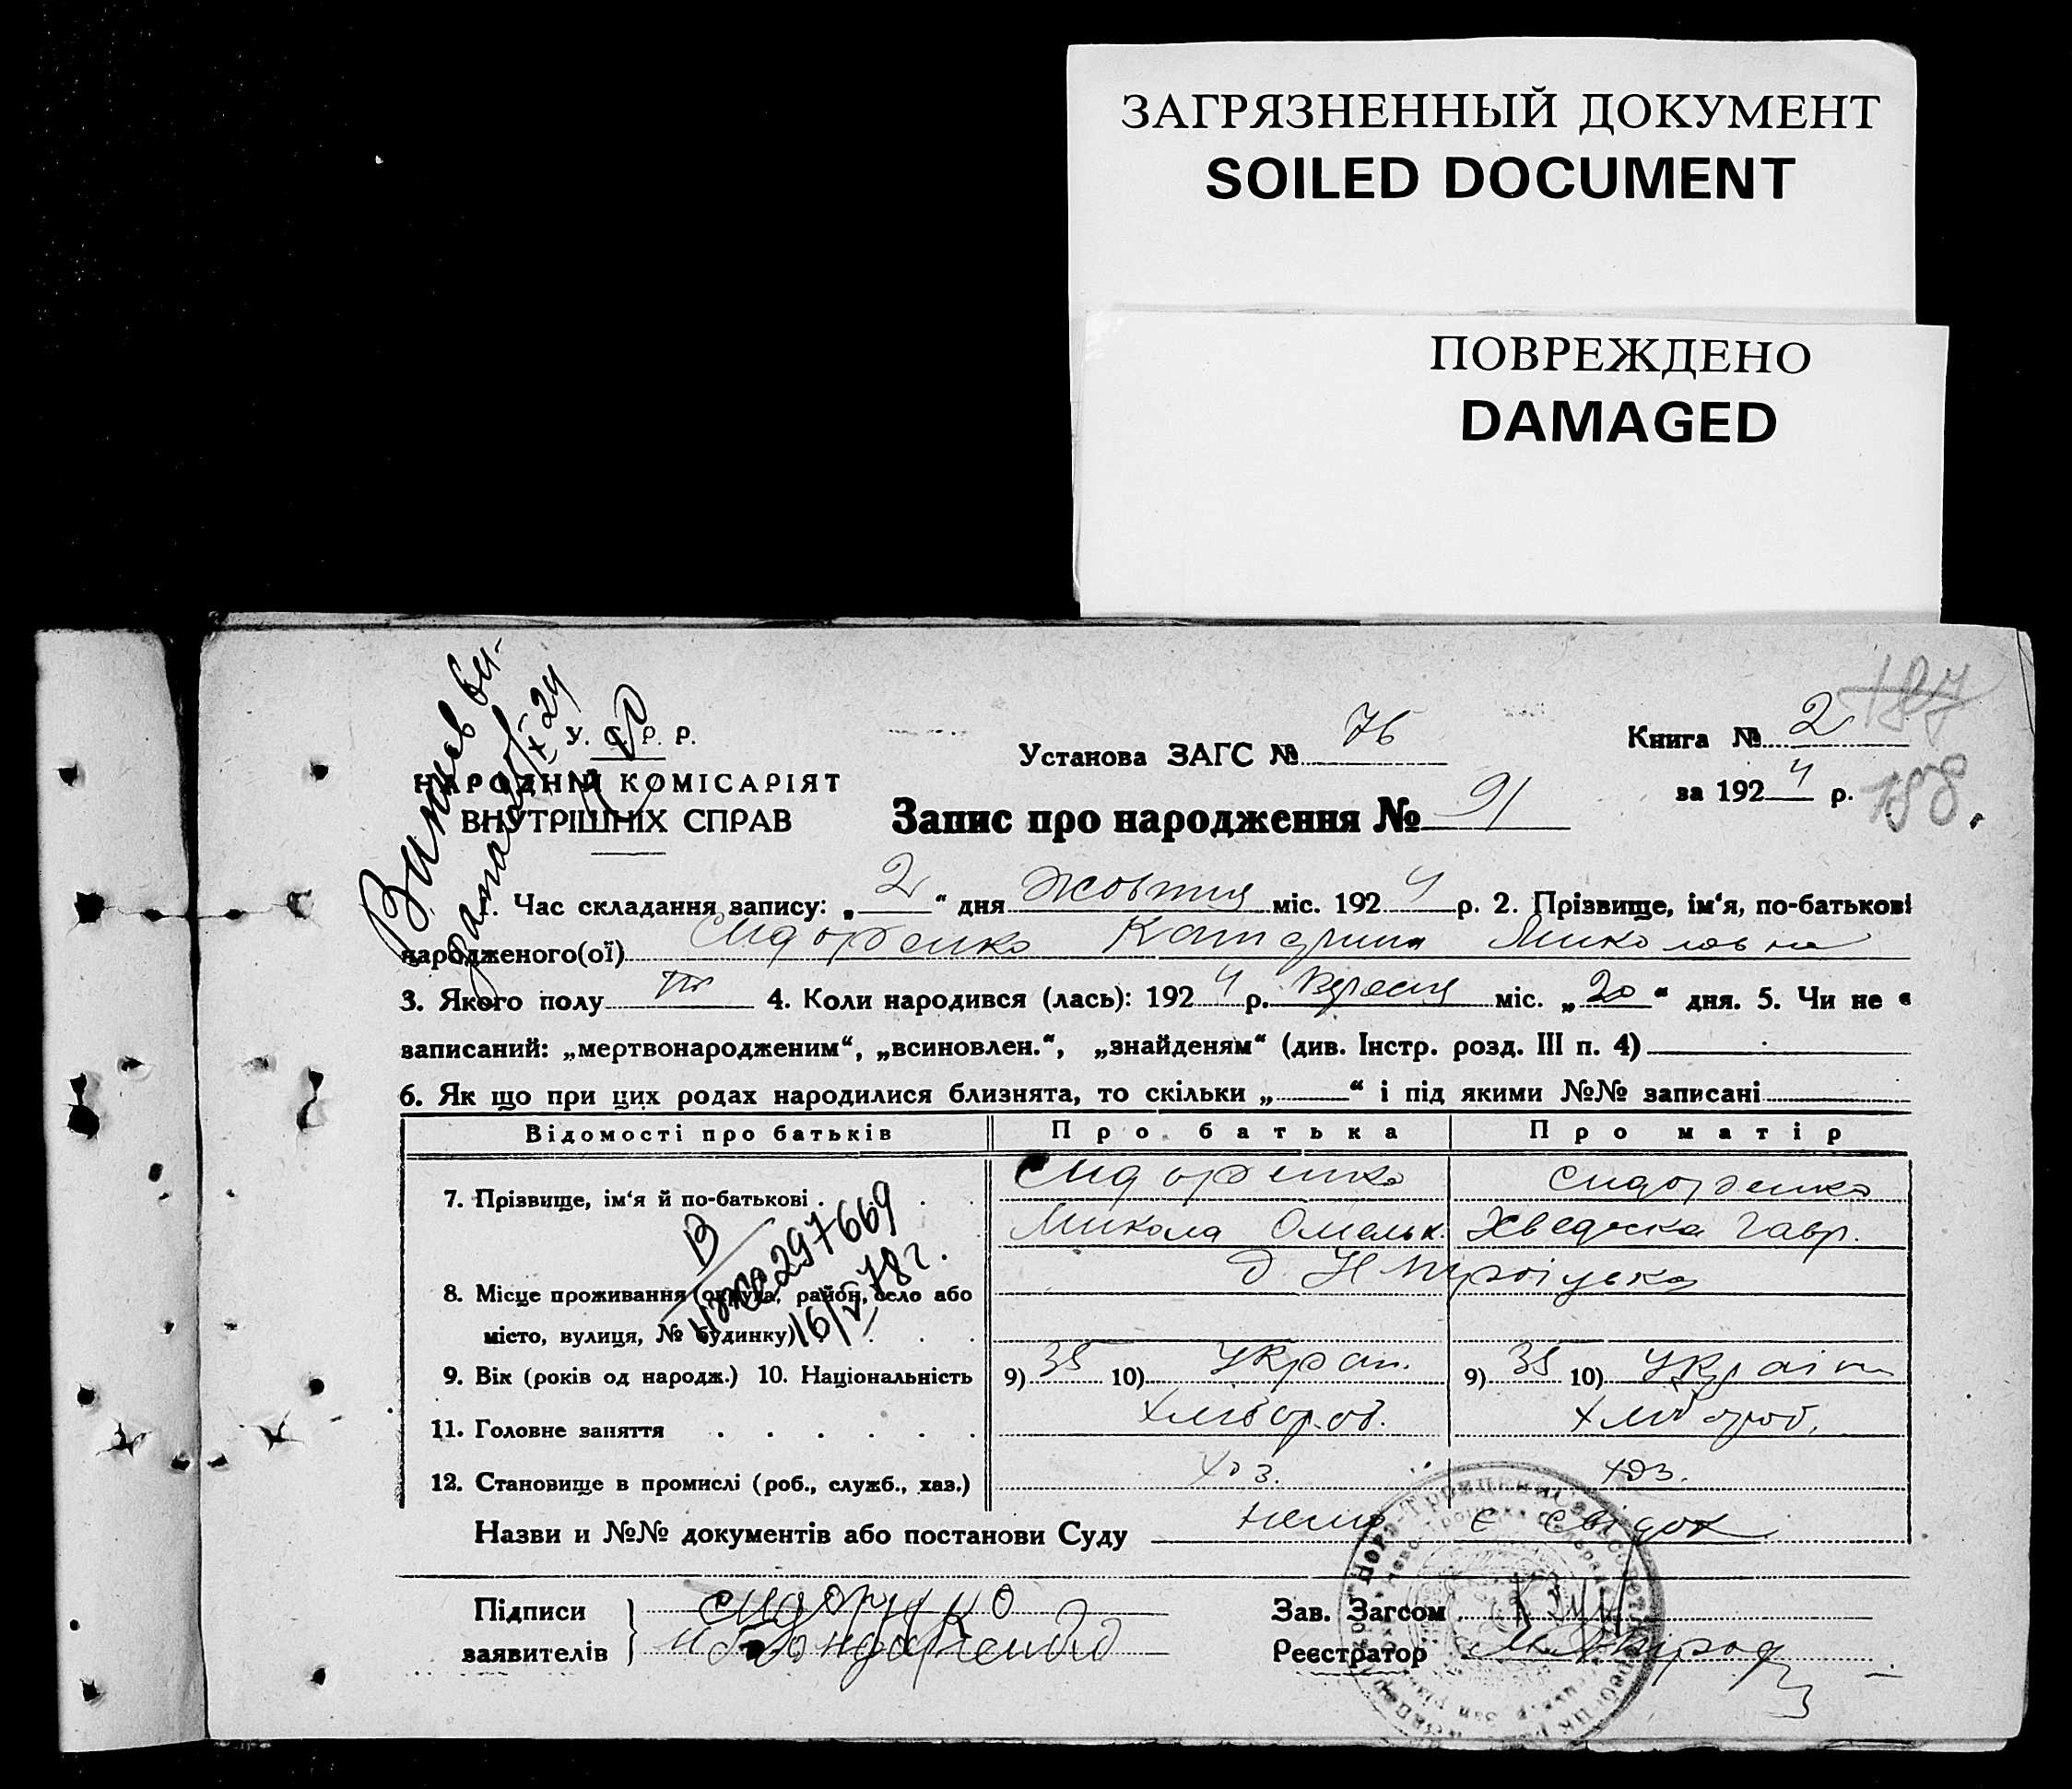 ЗАГРЯЗНЕННЫЙ ДОКУМЕНТ
SOILED DOCUMENT
ПОВРЕЖДЕНО
DAMAGED
187
188.
У. С. Р. Р.
НАРОДНІЙ КОМІСАРІЯТ
ВНУТРІШНІХ СПРАВ
Установа ЗАГС № 76
Книга № 2
за 1924 р.
Запис про народження № 91
1. Час складання запису: „2“ дня жовтня міс. 1924 р. 2. Прізвище, ім‘я, по-батькові
народженого(ої) Сидоренко Катерина Миколовна
3. Якого полу 4. Коли народився (лась): 1924 р. Вересня міс. „20“ дня. 5. Чи не є
записаний: „мертвонародженим“, „всиновлен.“, „знайденям“ (див. Інстр. розд. III п. 4)
6. Як що при цих родах народилися близнята, то скільки „ “ і під якими №№ записані
Відомості про батьків Про батька Про матір
7. Прізвище, ім‘я й по-батькові Сидоренко Сидоренко
Микола Омельк. Хведоска Гавр.
В
297669
16/V 78 г.
8. Місце проживання (округа, район, село або
місто, вулиця, № будинку)
9. Вік (років од народж.) 10. Національність 9) 35 10) Украп. 9) 35 10)
11. Головне заняття хлібороб. хлібороб.
12. Становище в промислі (роб., служб., хаз.) хоз. хоз.
Назви и №№ документів або постанови Суду нема є свідок
Підписи заявителів Сидоренко
Зав. Загсом
Реєстратор